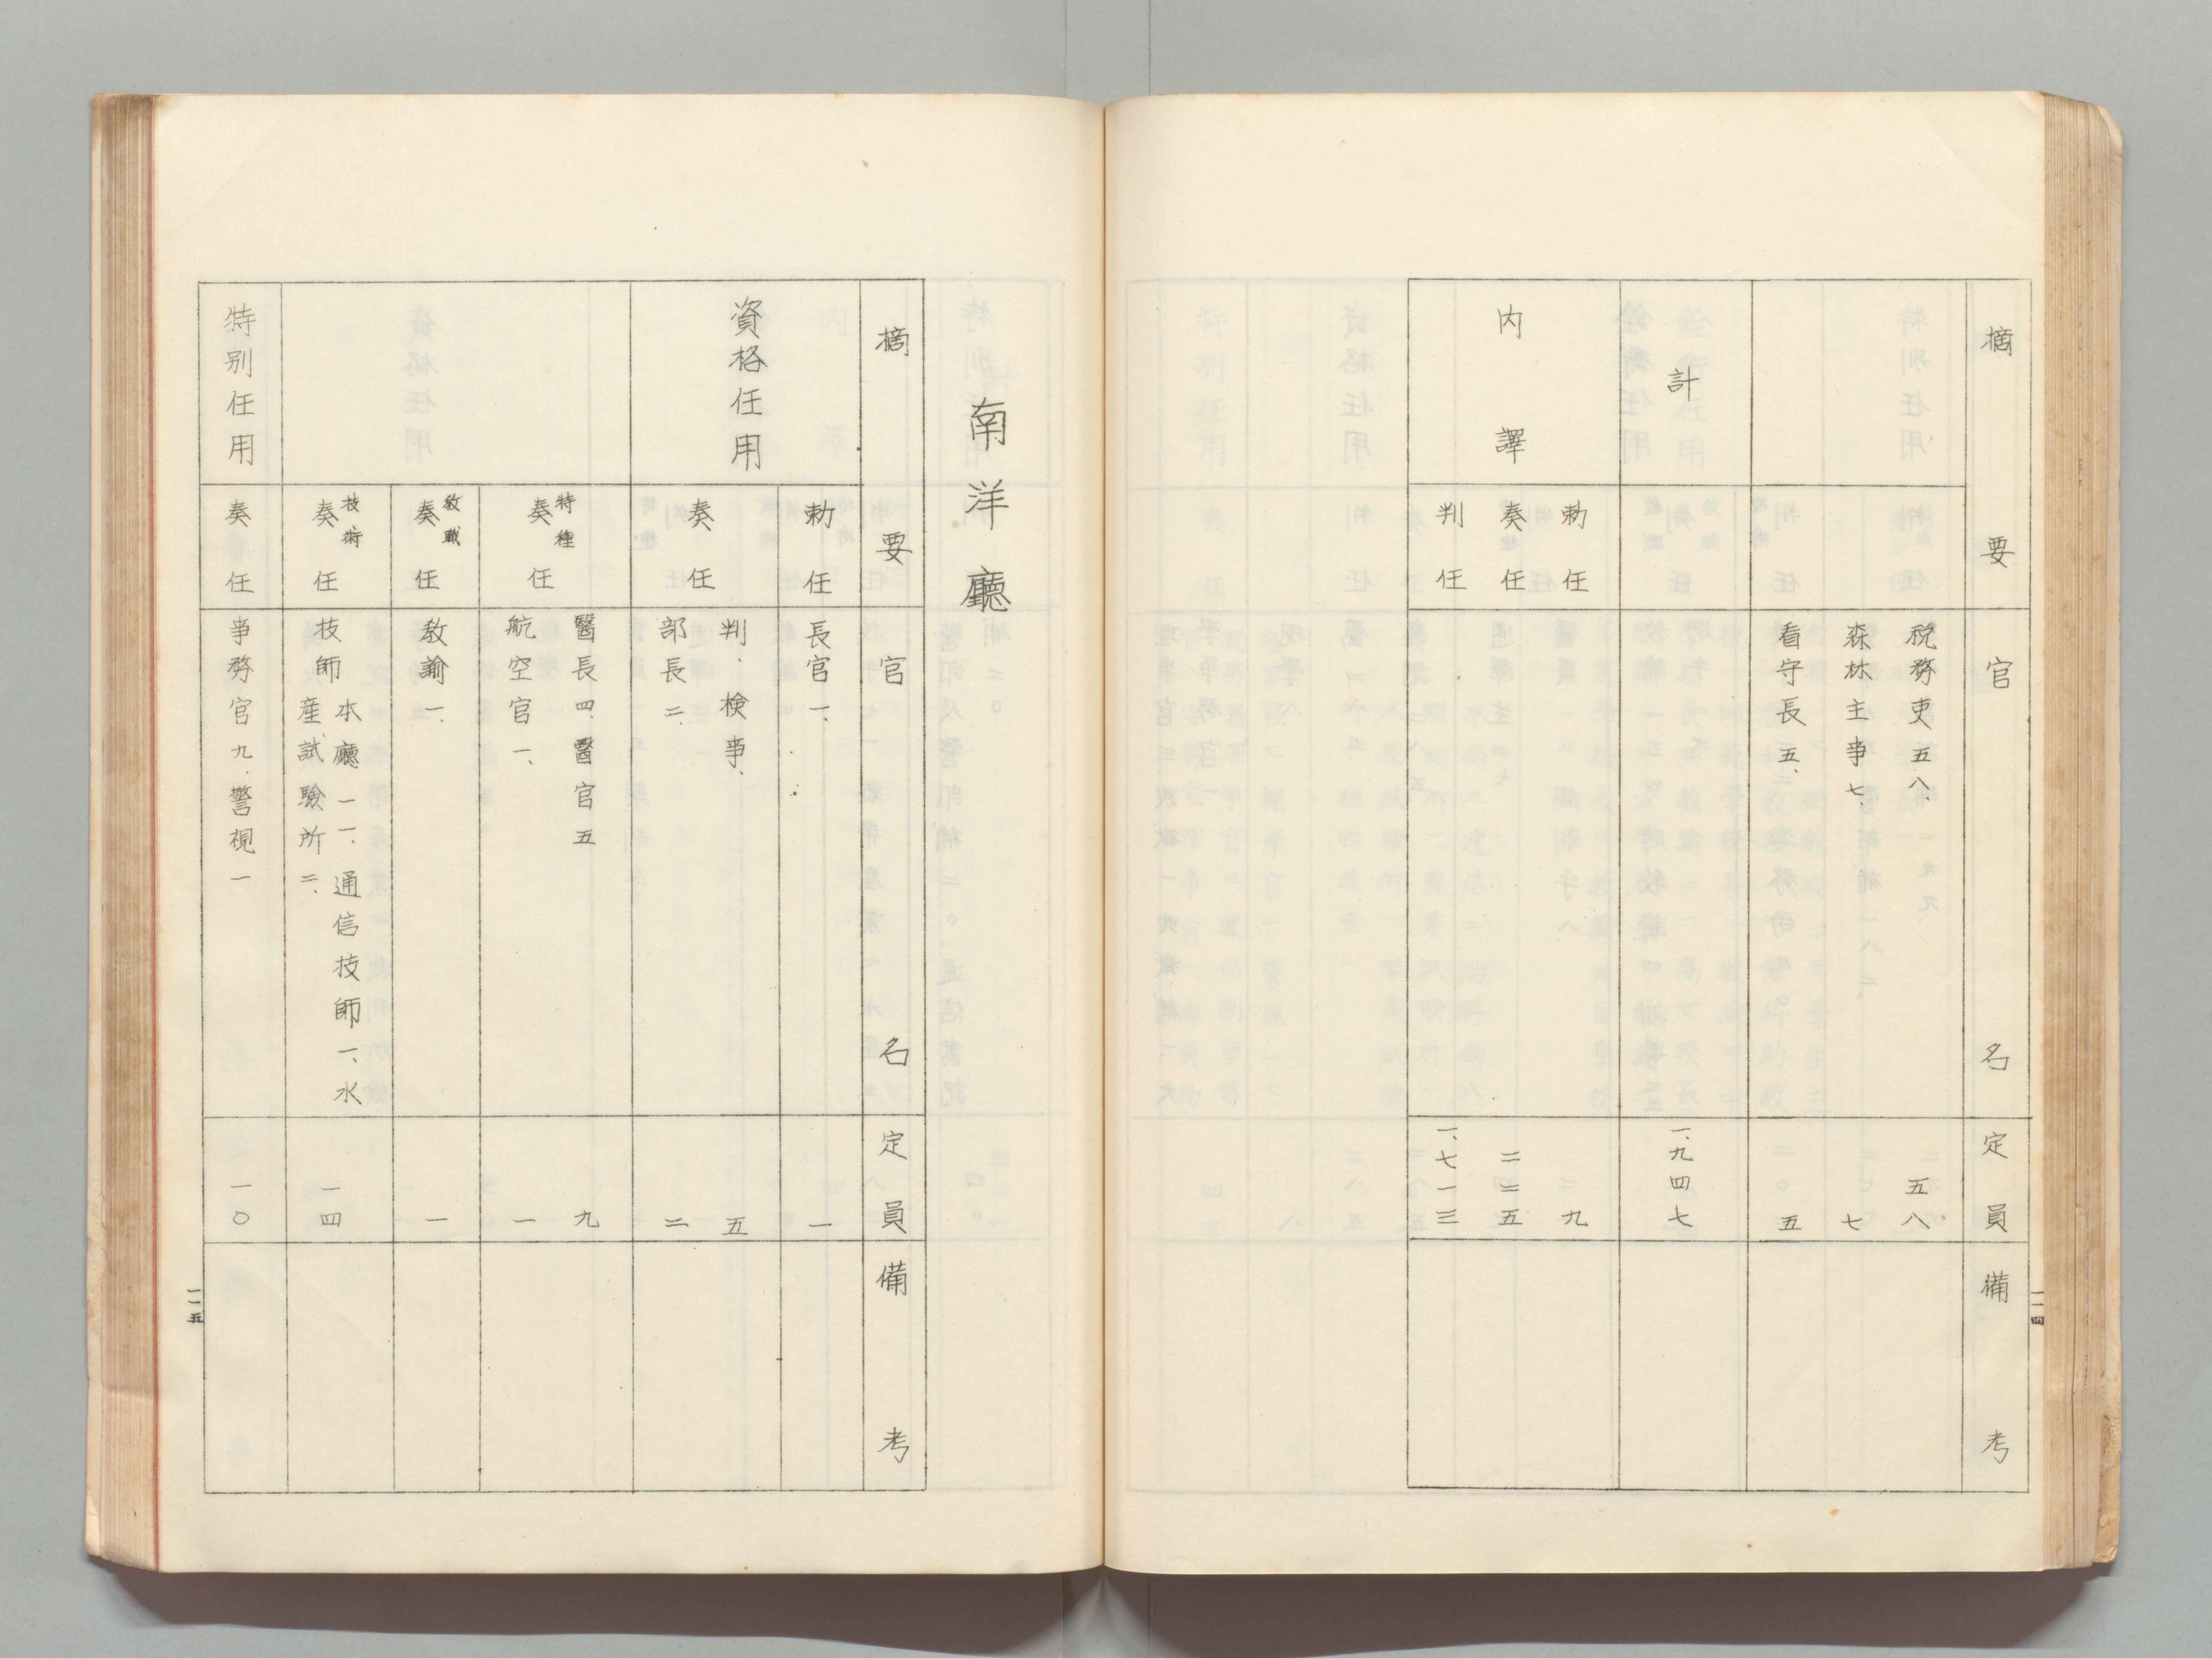 摘要
官名
定員
備考
税務吏五八、
五八
森林主事七、
七
看守長五、
五
計
一、九四七
内譯
勅任
九
奏任
二二五
判任
一、七一三
一一四
南洋廳
摘要
官名
定員
備考
資格任用
勅任
長官一、
一
奏任
判、検事、
五
部長二、
二
特種
奏任
醫長四、醫官五
九
航空官一、
一
教職
奏任
教諭一、
一
技術
奏任
技師
本廳一一、通信技師一、水
産試験所二、
一四
特別任用
奏任
事務官九、警視一
一〇
一一五